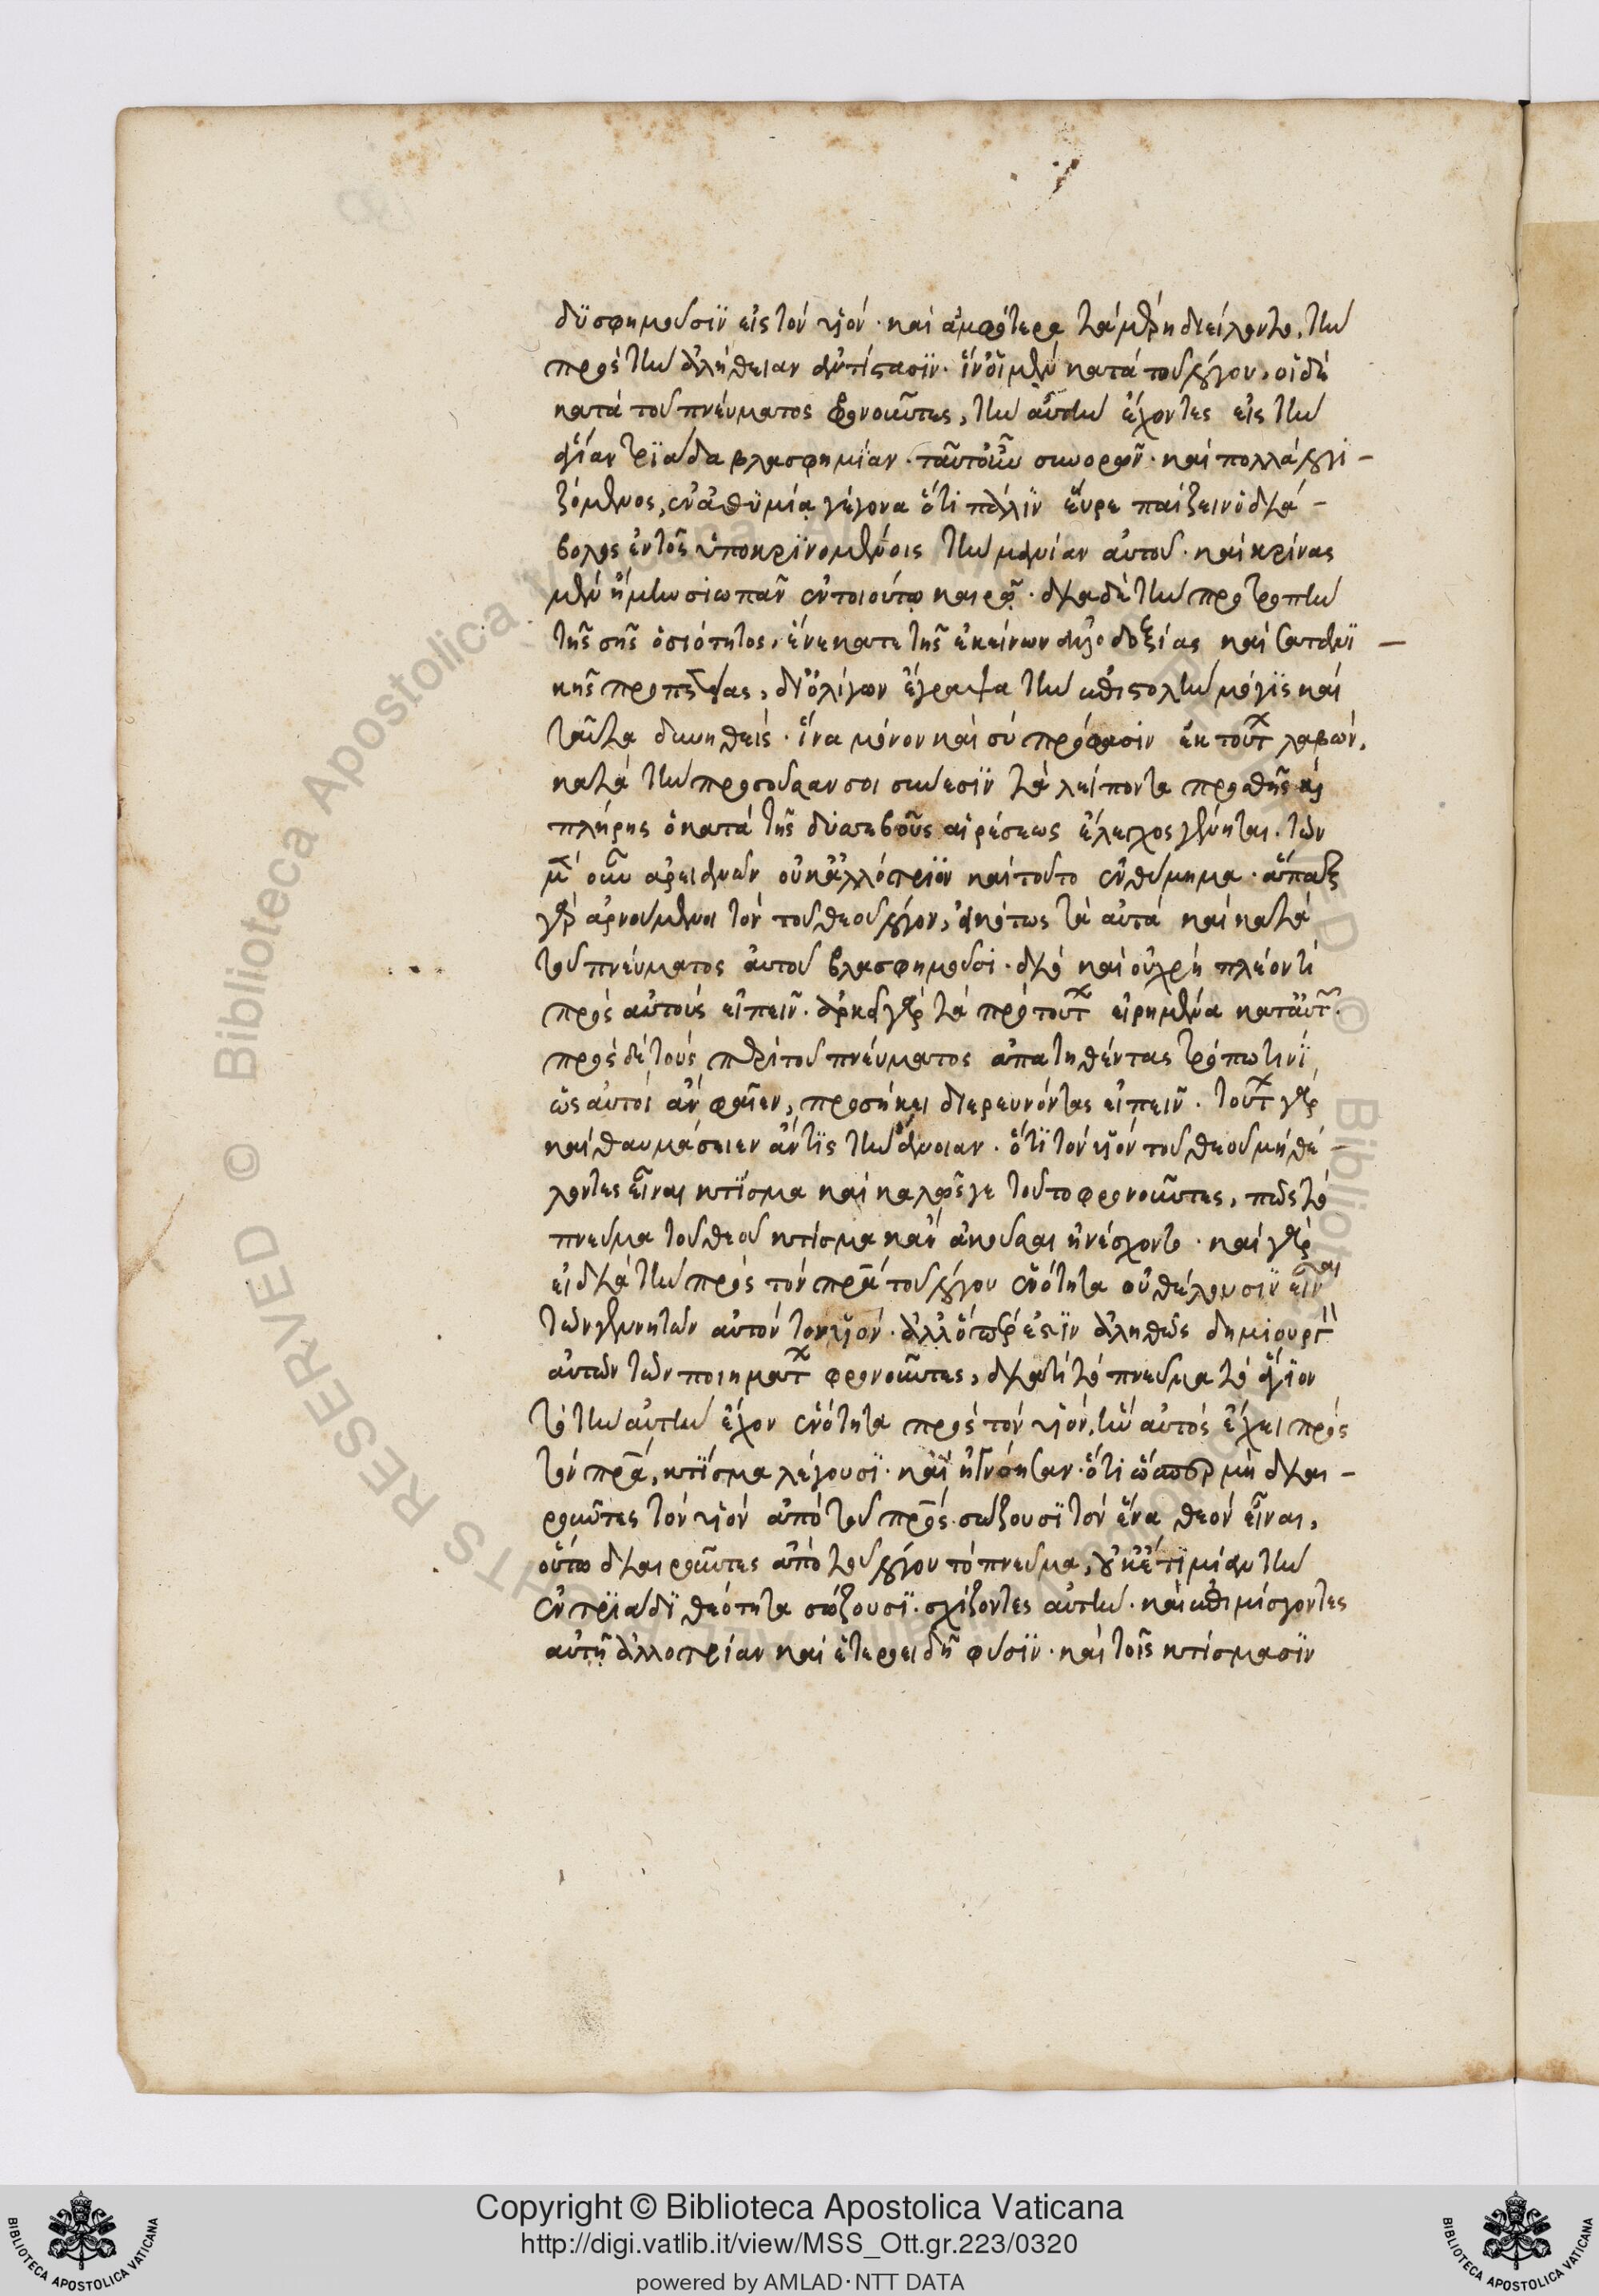 δϋσφημοῦσϊν εἰς τὸν υἱόν· καὶ ἀμφότερα τὰ μέρη διείλοντο, τὴν
πρὸς τὴν ἀλήθειαν ἀντίστασϊν· ἵν' οἱ μὲν κατὰ τοῦ λόγου, οἱ δὲ
κατὰ τοῦ πνεύματος φρονοῦντες, τὴν αὐτὴν ἔχοντες εἰς τὴν
ἁγίαν τρϊάδα βλασφημίαν· ταῦτ' οὖν συνορῶν· καὶ πολλὰ λογι-
ζόμενος, ἐν ἀθυμίᾳ γέγονα ὅτι πάλϊν εὗρε παίζειν ὁ διά-
βολος ἐν τοῖς ὑποκρϊνομένοις τὴν μανίαν αὐτοῦ· καὶ κρίνας
μὲν ἤμην σιωπᾶν ἐν τοιούτῳ καιρῷ· διὰ δὲ τὴν προτροπὴν
τῆς σῆς ὁσιότητος, ἕνεκά τε τῆς ἐκείνων ἀλλοδοξίας καὶ σατανϊ-
κῆς προπετείας, δι' ὀλίγων ἔγραψα τὴν ἐπιστολὴν μόγϊς καὶ
ταῦτα δυνηθείς· ἵνα μόνον καὶ σὺ πρόφασιν ἐκ τούτων λαβών,
κατὰ τὴν προσοῦσαν σοι σύνεσϊν τὰ λείποντα προσθῇς καὶ
πλήρης ὁ κατὰ τῆς δυσσεβοῦς αἱρέσεως ἔλεγχος γένηται. τῶν
μὲν οὖν ἀρειανῶν οὐκ ἀλλότρϊον καὶ τοῦτο ἐνθύμημα· ἅπαξ
γὰρ ἀρνούμενοι τὸν τοῦ θεοῦ λόγον, εἰκότως τὰ αὐτὰ καὶ κατὰ
τοῦ πνεύματος αὐτοῦ βλασφημοῦσι· διὸ καὶ οὐ χρὴ πλέον τὶ
πρὸς αὐτοὺς εἰπεῖν. ἀρκεῖ γὰρ τὰ πρὸ τούτων εἰρημένα κατ' αὐτῶν·
πρὸς δὲ τοὺς περὶ τοῦ πνεύματος ἀπατηθέντας τρόπω τινϊ
ὡς αὐτοὶ ἂν φαῖεν, προσήκει διερευνόντας εἰπεῖν. τούτων γὰρ
καὶ θαυμάσειεν ἄν τϊς τὴν ἄνοιαν· ὅτϊ τὸν υἱὸν τοῦ θεοῦ μὴ θέ-
λοντες εἶναι κτϊσμα καὶ καλῶς γε τοῦτο φρονοῦντες, πῶς τὸ
πνεῦμα τοῦ θεοῦ κτίσμα κἂν ἀκοῦσαι ἠνέσχοντο· καὶ γὰρ
εἰ διὰ τὴν πρὸς τὸν πρα τοῦ λόγου ἑνότητα οὐ θέλουσϊν εἶναι
τῶν γενητῶν αὐτὸν τὸν υἱόν· ἀλλ' ὅπερ ἐστϊν ἀληθῶς δημιουργὸν
αὐτὸν τῶν ποιημάτων φρονοῦντες, διατί τὸ πνεῦμα τὸ ἅγϊον
τὸ τὴν αὐτὴν ἔχον ἑνότητα πρὸς τὸν υἱόν, ἣν αὐτὸς ἔχει πρὸς
τὸν πρα, κτϊσμα λέγουσϊ· καὶ ἠγνόησαν· ὅτι ὥσπερ μὴ διαι-
ροῦντες τὸν υἱὸν ἀπὸ τοῦ πρς· σώζουσϊ τὸν ἕνα θεὸν εἶναι,
οὕτω διαιροῦντες ἀπὸ τοῦ λόγου τὸ πνεῦμα, οὐκ ἔτϊ μίαν τὴν
ἐν τρϊάδϊ θεότητα σώζουσϊ· σχίζοντες αὐτὴν· καὶ ἐπιμίσγοντες
αὐτῇ ἀλλοτρίαν καὶ ἑτεροειδῆ φύσϊν· καὶ τοῖς κτίσμασϊν
Copyright © Biblioteca Apostolica Vaticana
http://digi.vatlib.it/view/MSS_Ott.gr.223/0320
powered by AMLAD·NTT DATA